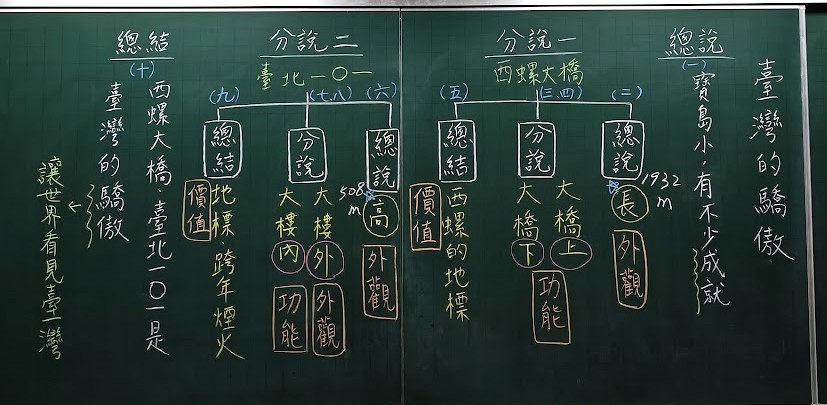 臺灣的驕傲
總說
(一)
寶島小，有不少成就
分說一
西螺大橋
(二)
總說
1932 m
長
外觀
(三.四)
分說
大橋上
大橋下
功能
(五)
總結
西螺的地標
價值
分說二
臺北一〇一
(六)
總說
508 m
高
外觀
(七.八)
分說
大樓外
外觀
大樓內
功能
(九)
總結
地標．跨年煙火
價值
總結
(十)
西螺大橋．臺北一〇一是
臺灣的驕傲
讓世界看見臺灣